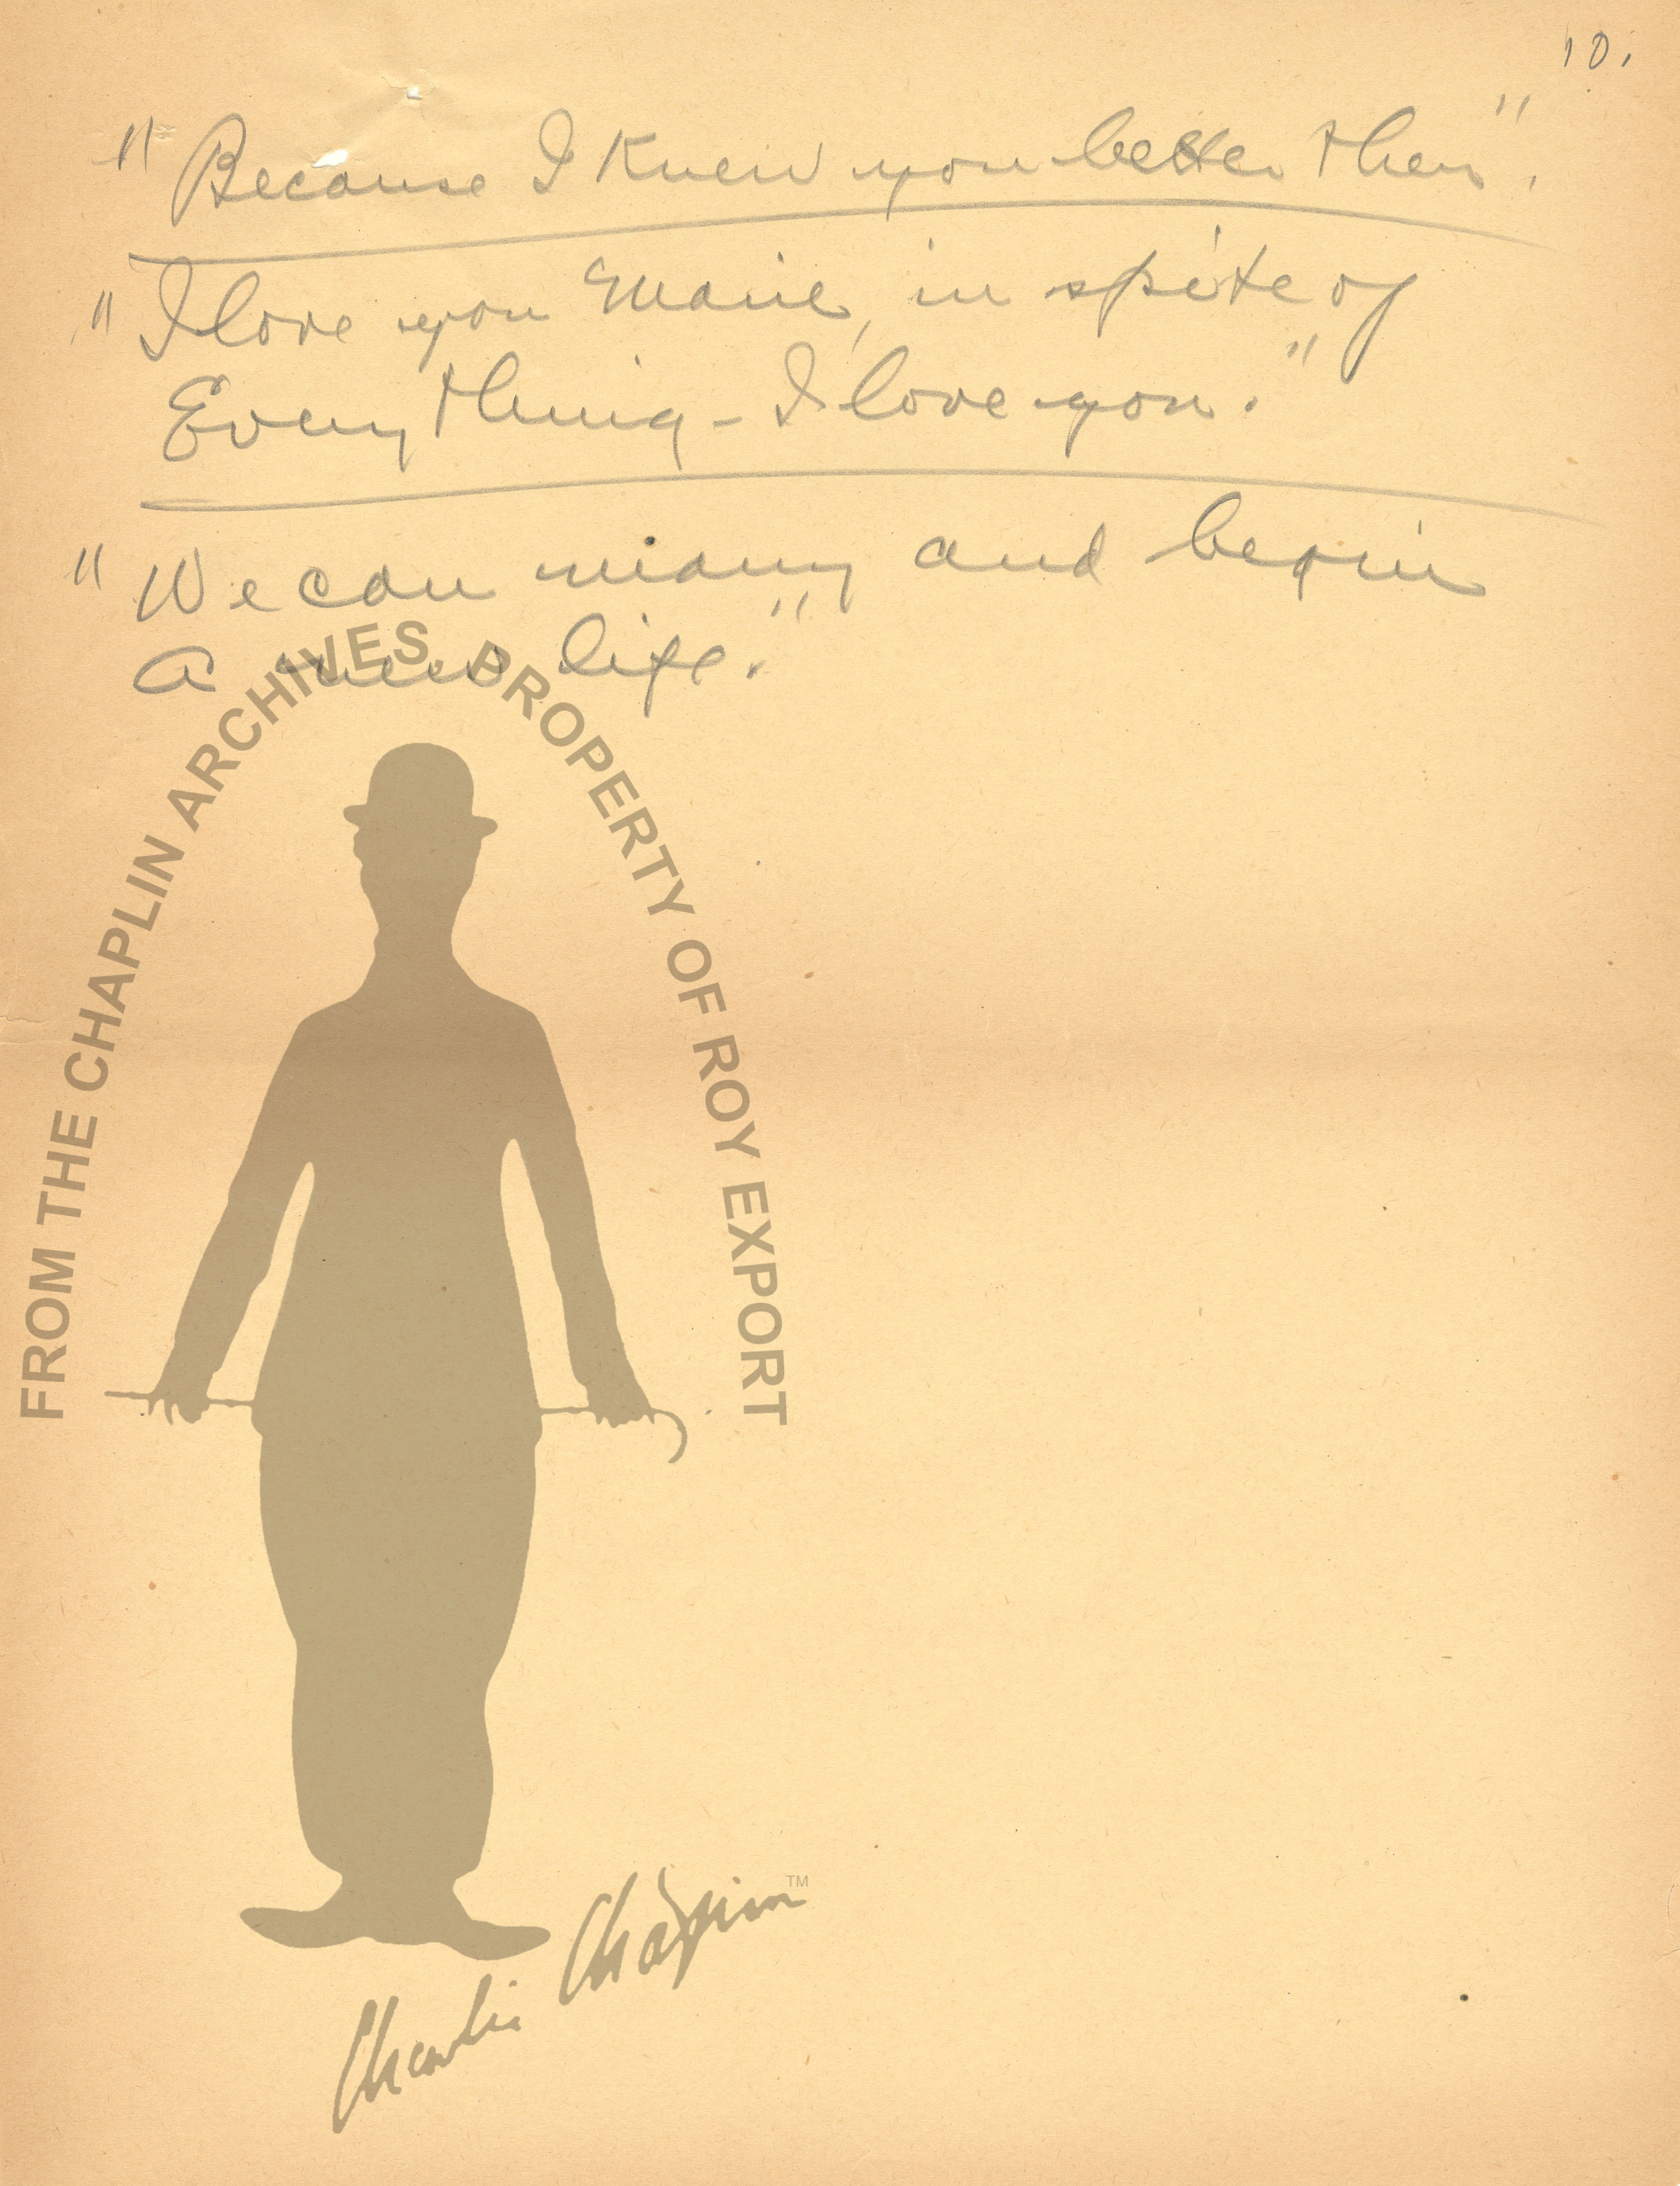 10.
"Because I Knew you better then".
"I love you Marie, in spite of
Everything - I love you."
"We can marry and begin
a new life."
FROM THE CHAPLIN ARCHIVES. PROPERTY OF ROY EXPORT
Charlie Chaplin™